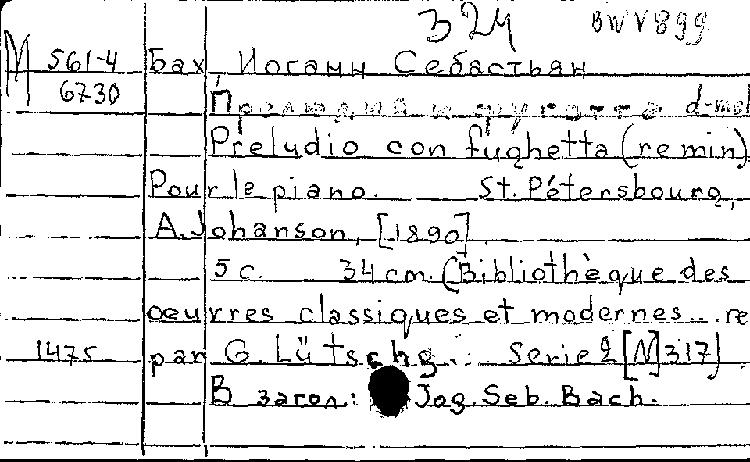 324 BWV899
М 561-4 Бах, Иоганн Себастьян
6730 Прелюдия и фугетта d-mol
Preludio con fughetta (re min)
Pour le piano. St. Pétersbourg,
A. Johanson, [1890].
5 с. 34 cm. (Bibliothèque des
oeuvres classiques et modernes... re
1475 par G. Lütschg... Serie 2 [N] 317)
В загол: Jog. Seb. Bach.